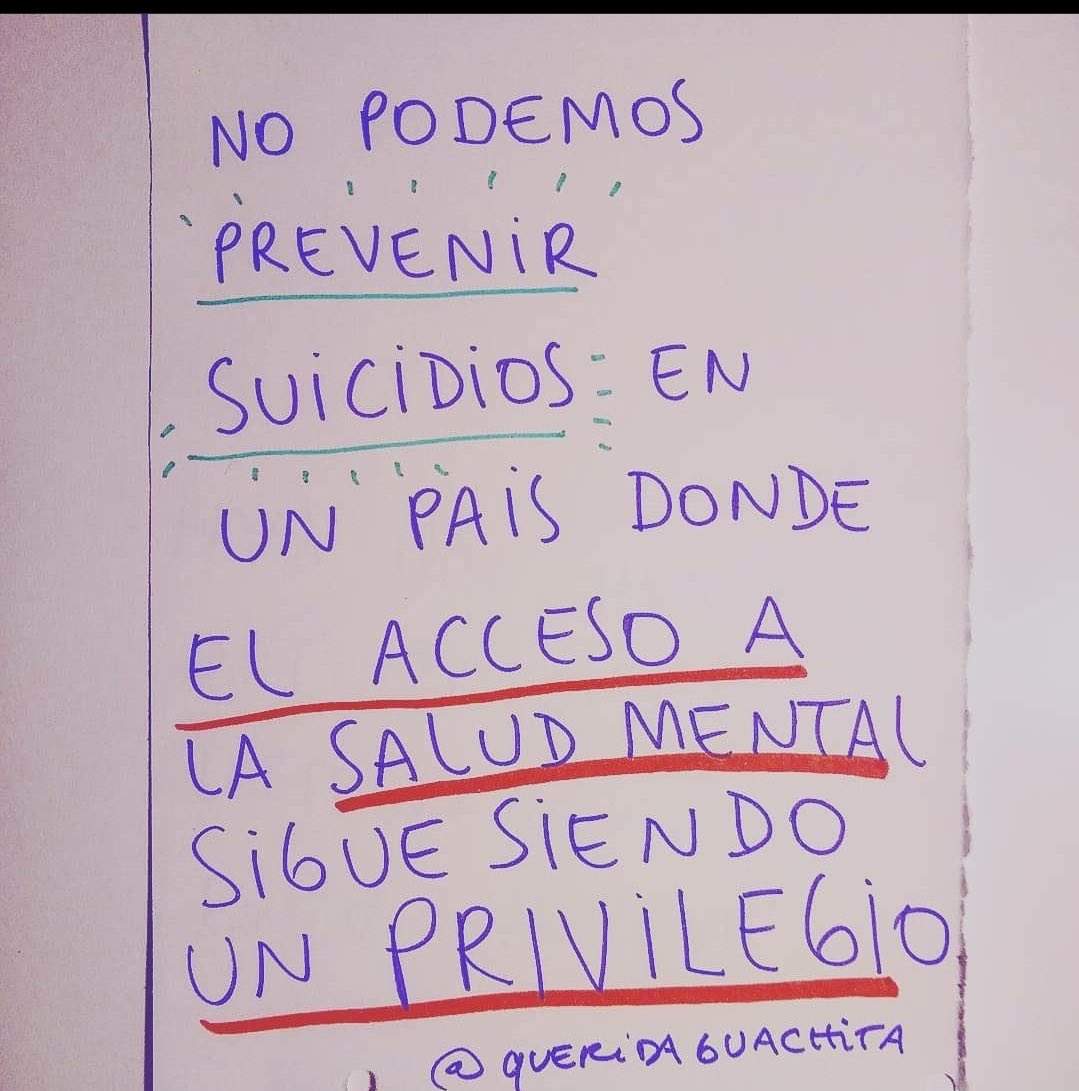 NO PODEMOS
PREVENIR
SUICIDIOS EN
UN PAIS DONDE
EL ACCESO A
LA SALUD MENTAL
SIGUE SIENDO
UN PRIVILEGIO
@QUERIDAGUACHITA